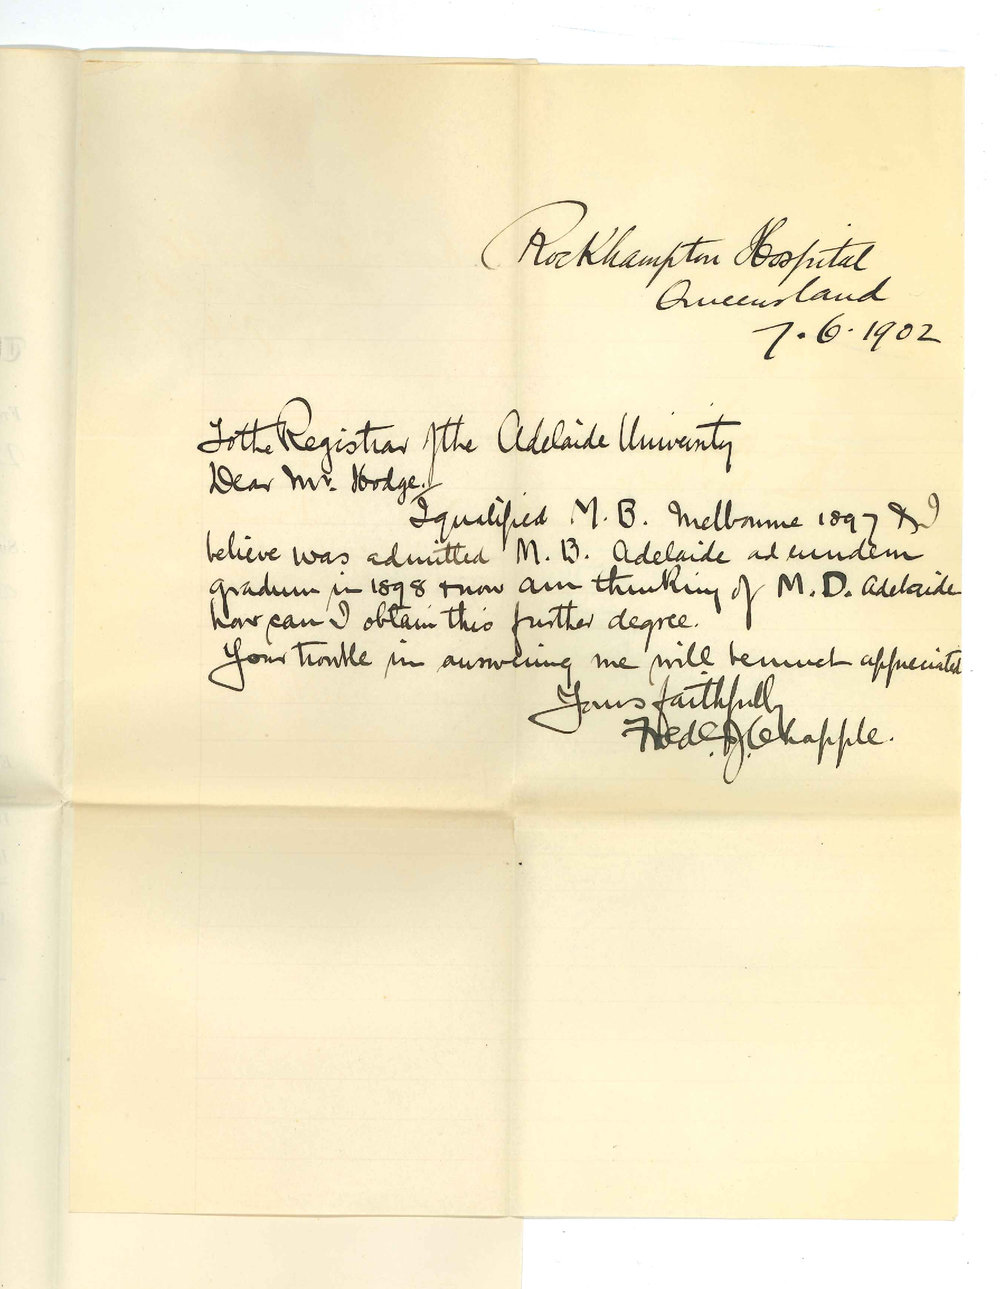 Rockhampton Hospital
Queensland
7.6.1902
To the Registrar of the Adelaide University
Dear Mr. Hodge.
I qualified M.B. Melbourne 1897 & I
believe was admitted M.B. Adelaide ad eundem
gradum in 1898 & now am thinking of M.D. Adelaide
how can I obtain this further degree.
Your trouble in answering me will be much appreciated
Yours faithfully
Fredc. J. Chapple.